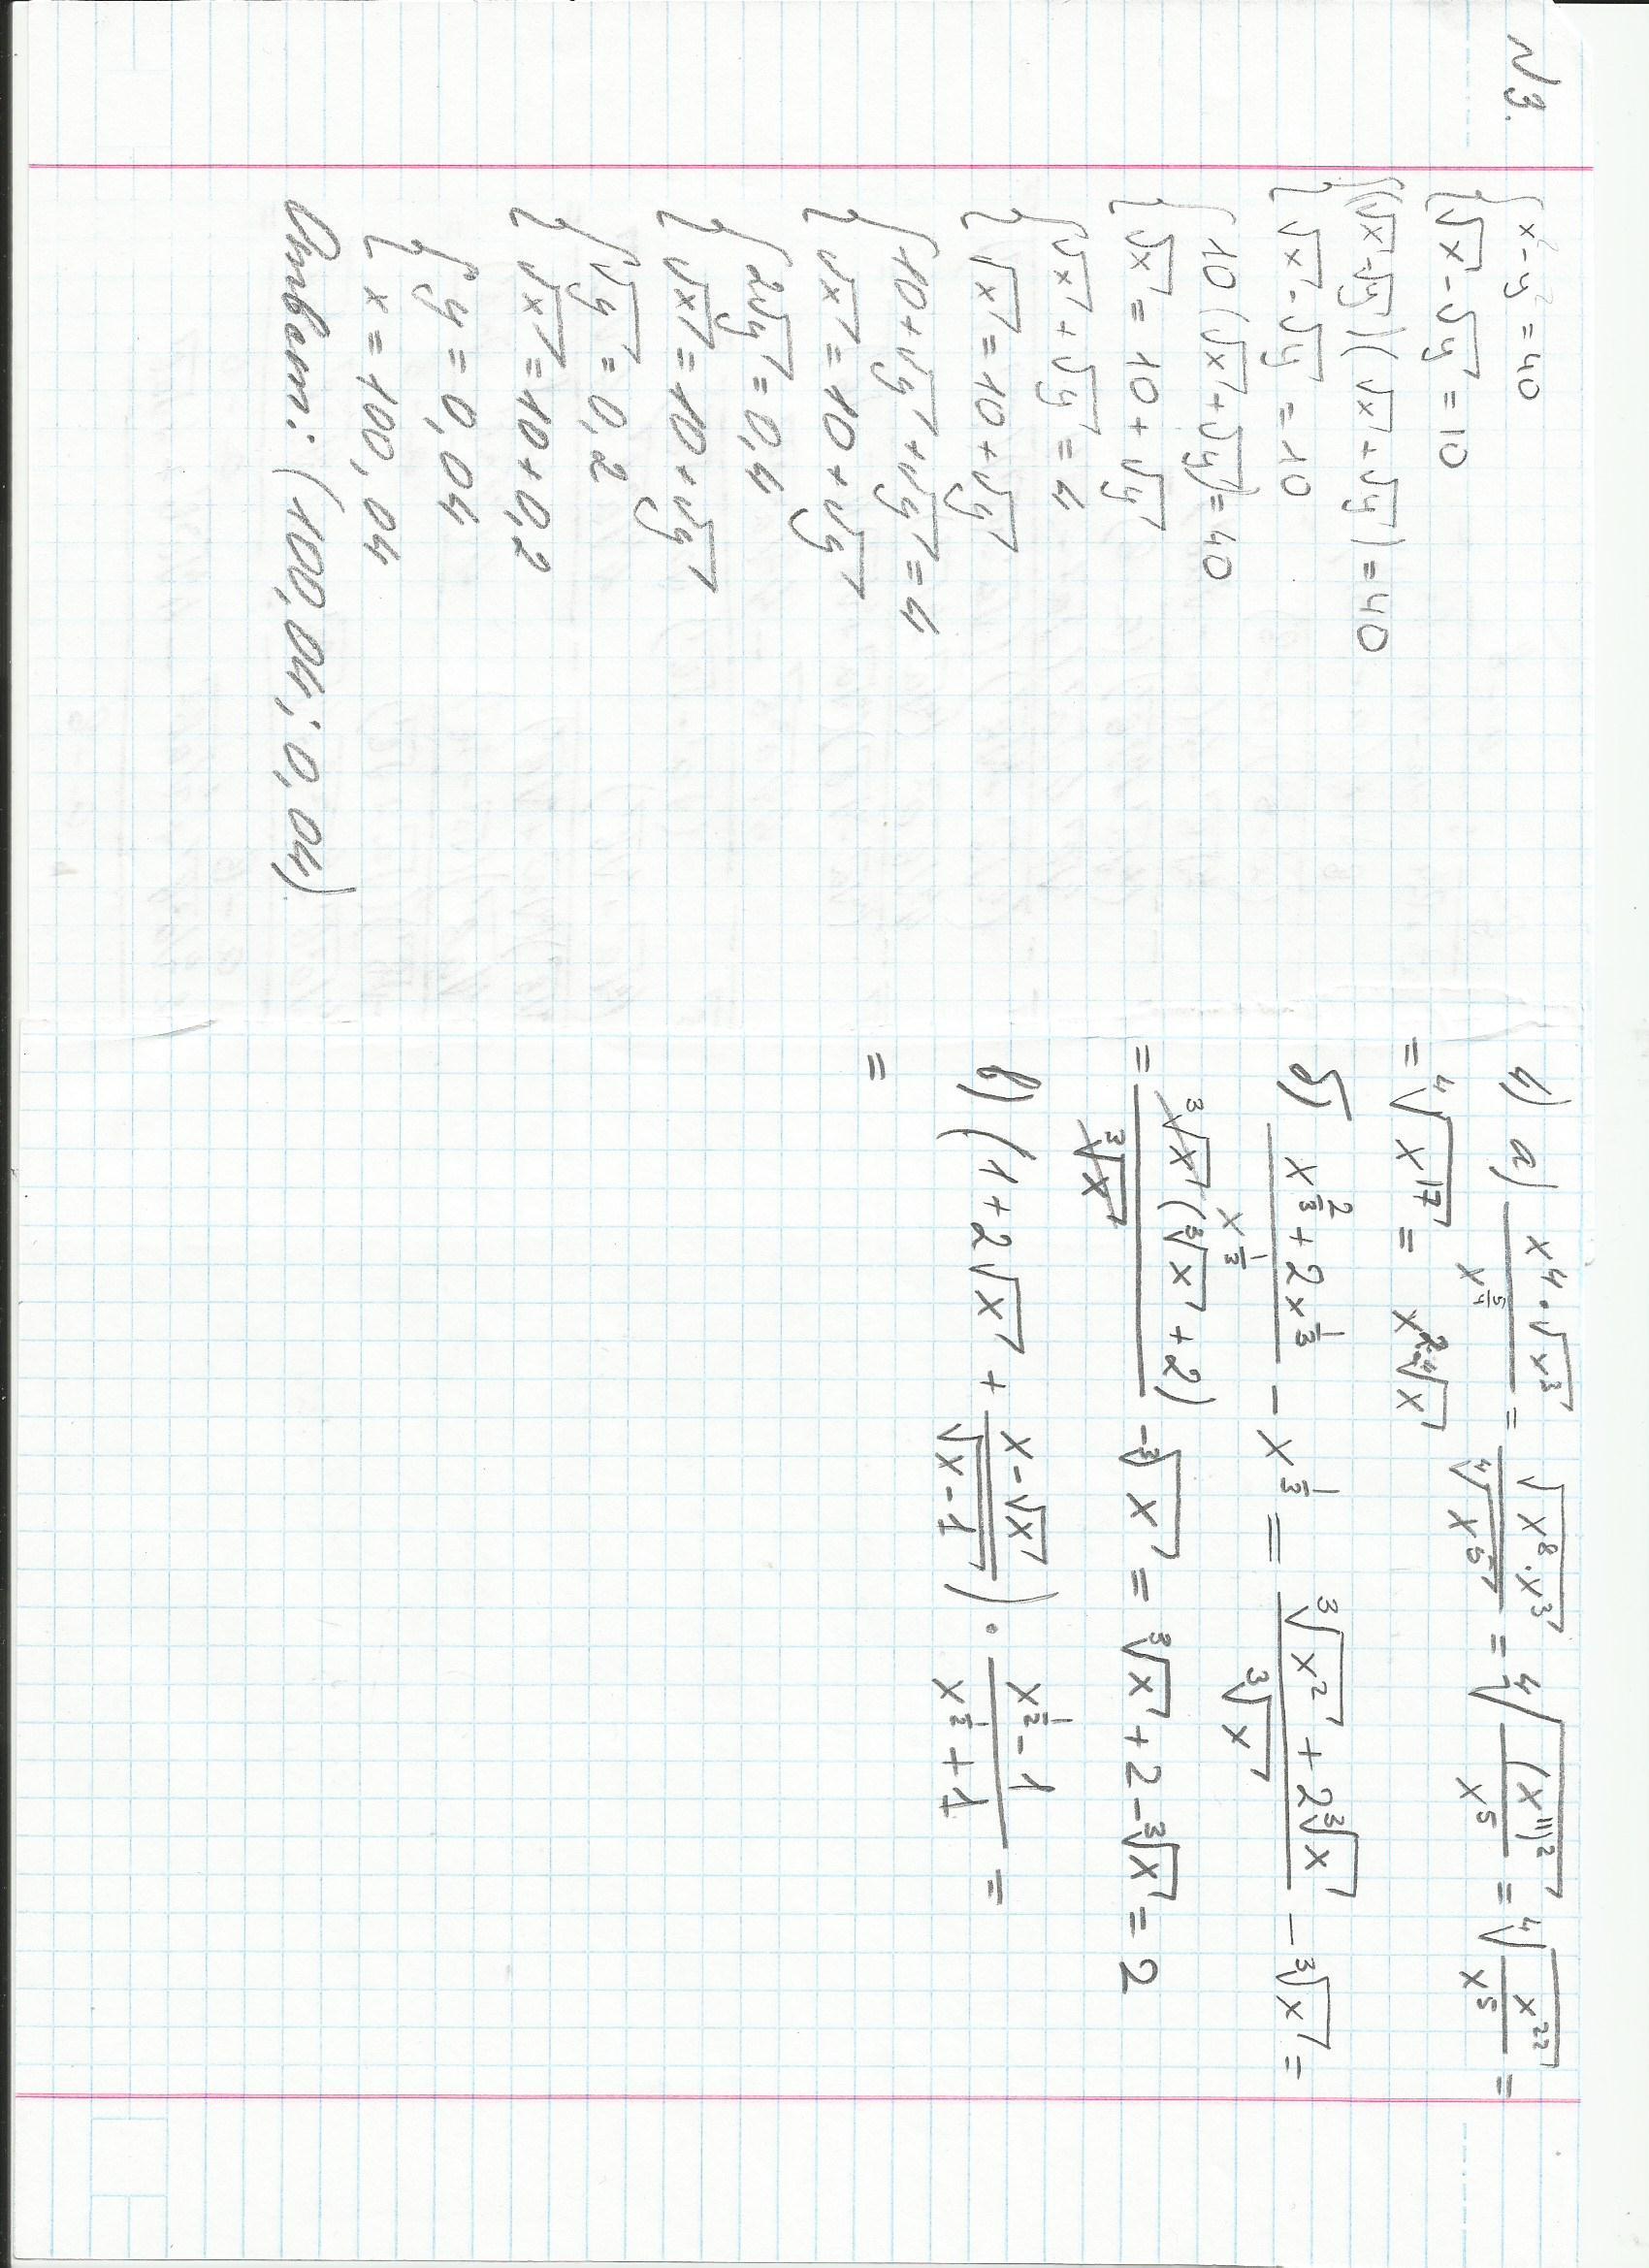 N3.
{ x² - y² = 40
{ √x - √y = 10
{ (√x - √y)(√x + √y) = 40
{ √x - √y = 10
{ 10(√x + √y) = 40
{ √x = 10 + √y
{ √x + √y = 4
{ √x = 10 + √y
{ 10 + √y + √y = 4
{ √x = 10 + √y
{ 2√y = 0,4
{ √x = 10 + √y
{ √y = 0,2
{ √x = 10 + 0,2
{ y = 0,04
{ x = 100,04
Ответ: (100,04; 0,04)
4) а) (x⁴·√x³)/(x^(5/4)) = √(x⁸·x³)/⁴√(x⁵) = ⁴√((x¹¹)²/x⁵) = ⁴√(x²²/x⁵) =
= ⁴√(x¹⁷) = x²·⁴√x
б) (x^(2/3) + 2x^(1/3))/(x^(1/3)) - x^(1/3) = (³√(x²) + 2³√x)/(³√x) - ³√x =
= (³√x(³√x + 2))/(³√x) - ³√x = ³√x + 2 - ³√x = 2
в) (1 + 2√x + (x - √x)/(√(x - 1))) · (x^(1/2) - 1)/(x^(1/2) + 1) =
=